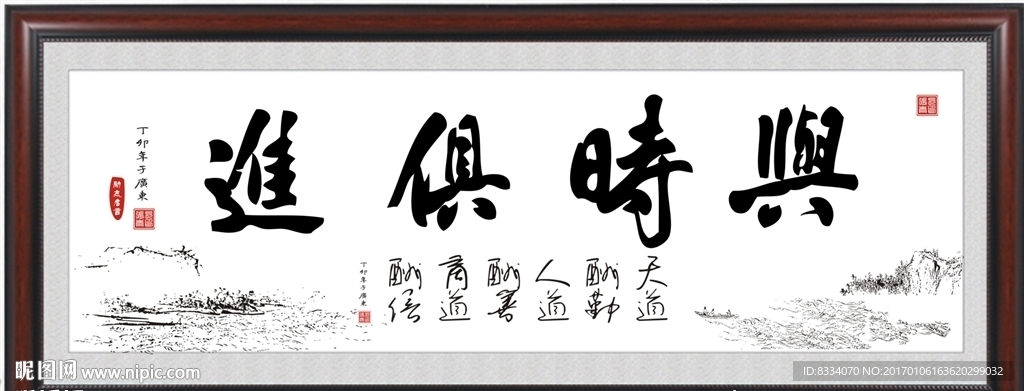 與時俱進
丁卯年于廣東
天道
酬勤
人道
酬善
商道
酬信
丁卯年于廣東
昵图网 www.nipic.com
ID:8334070 NO:20170106163620299032